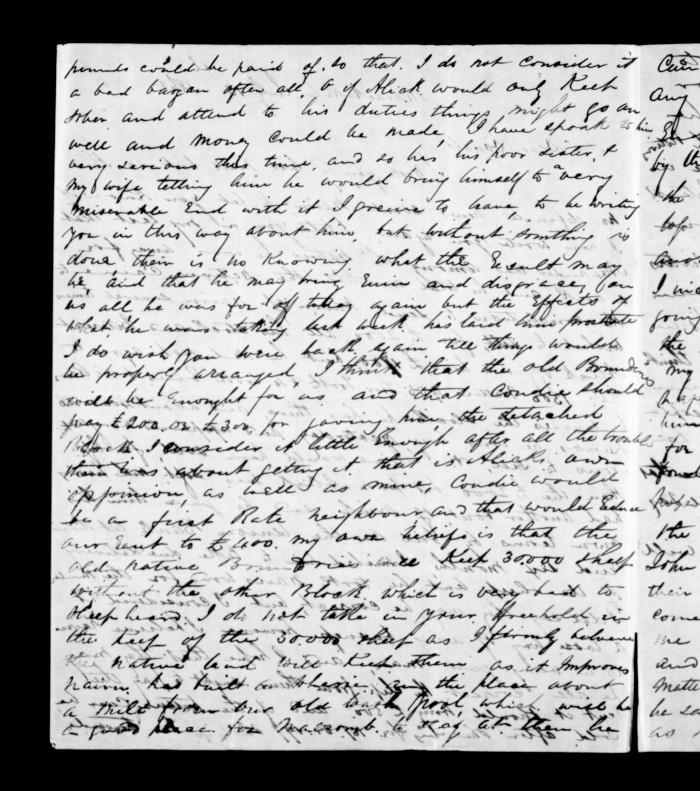 pounds could be paid of. so that. I do not consider it
a bad bargan after all, & if Alick would only Keep
sober and attend to his duties things might go on
well and money could be made, I have spoak to him
very serious this time, and so has his poor sister, &
my wife telling him he would bring himself to a very
miserable End with it I greive to have to be writing
you in this way about him, but without somthing is
done their is no Knowing what the Result may
be, and that he may bring Ruin and disgrace, on
us all he was for off takeg again but the Effects of
what he was takeg last week has laid him prostrate
I do wish you were back again till things would
be properly arranged, I think that the old Boundries
will be Enought for us and that Condie should
pay £200. or £300 for gaving him the detached
Block I consider it little Enough after all the trouble
their was about getting it that is Alick. awn
oppinion, as well as mine, Condie would
be a first Rate neighbour and that would Reduce
our Rent to £400. my awn beliefs is that the
old native Boundries will Keep 30.000 sheep
without the other Block. which is very bad to
sheep heard, I do not take in your freehold in
the Keep of the 30.000 sheep as I firmly beleave
the native land will Keep them as it Improves
Nairn has built a on the place about
a mile from our old wash pool, which will be
a good place for Maccomb. to stay at them he
Cair
any
by th
the
befo
I wi
going
the
my
him
for
the
John
their
come
me
and
matte
be so
as